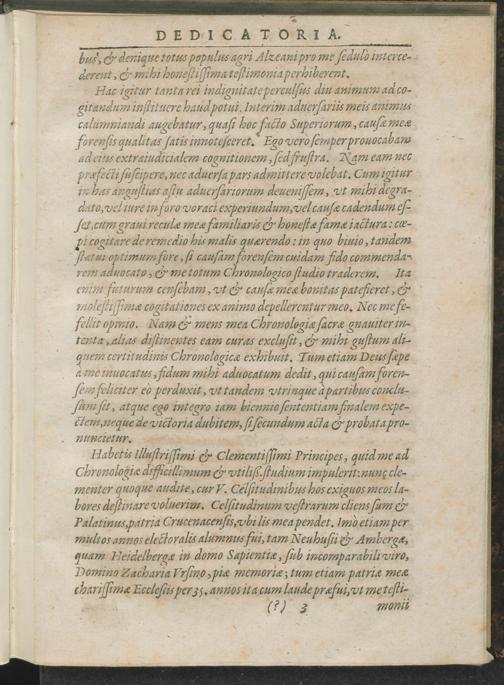 DEDICATORIA.
bus, & denique totus populus agri Alzeani pro me sedulò interce-
derent, & mihi honestissima testimonia perhiberent.
Hac igitur tanta rei indignitate perculsus diu animum ad co-
gitandum instituere haud potui. Interim adversariis meis animus
calumniandi augebatur, quasi hoc facto Superiorum, causæ meæ
forensis qualitas satis innotesceret. Ego vero semper provocabam
ad eius extraiudicialem cognitionem, sed frustra. Nam eam nec
præfecti suscipere, nec adversa pars admittere volebat. Cum igitur
in has angustias astu adversariorum devenissem, vt mihi degra-
dato, vel iure in foro voraci experiundum, vel causæ cadendum es-
set, cum gravi reculæ meæ familiaris & honestæ famæ iactura: cœ-
pi cogitare de remedio his malis quærendo: in quo bivio, tandem
statui optimum fore, si causam forensem cuidam fido commenda-
rem advocato, & me totum Chronologico studio traderem. Ita
enim futurum censebam, vt & causæ meæ bonitas patefieret, &
molestissimæ cogitationes ex animo depellerentur meo. Nec me fe-
fellit opinio. Nam & mens mea Chronologiæ sacræ gnaviter in-
tenta, alias distinentes eam curas exclusit, & mihi gustum ali-
quem certitudinis Chronologicæ exhibuit. Tum etiam Deus sæpe
a me invocatus, fidum mihi advocatum dedit, qui causam foren-
sem feliciter eò perduxit, vt tandem vtrinque à partibus conclu-
sum sit, atque ego integro iam biennio sententiam finalem expe-
ctem, neque de victoria dubitem, si secundum acta & probata pro-
nuncietur.
Habetis Illustrissimi & Clementissimi Principes, quid me ad
Chronologiæ difficillimum & vtiliss. studium impulerit: nunc cle-
menter quoque audite, cur V. Celsitudinibus hos exiguos meos la-
bores destinare voluerim. Celsitudinum vestrarum cliens sum &
Palatinus, patria Crucenacensis, vbi lis mea pendet. Imò etiam per
multos annos electoralis alumnus fui, tam Neuhusii & Ambergæ,
quam Heidelbergæ in domo Sapientiæ, sub incomparabili viro,
Domino Zacharia Vrsino, piæ memoriæ; tum etiam patriæ meæ
charissimæ Ecclesiis per 35. annos ita cum laude præfui, vt me testi-
(?) 3 monii